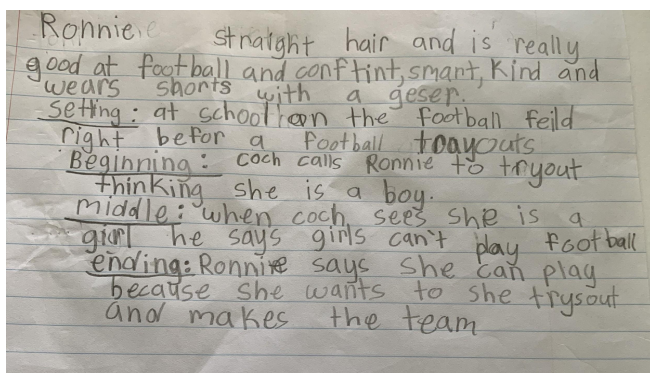 Ronnie straight hair and is really
good at football and conftint, smart, kind and
wears shorts with a geser.
Setting: at school on the football feild
right befor a football trayouts
Beginning: coch calls Ronnie to tryout
thinking she is a boy.
middle: when coch sees she is a
girl he says girls can't play football
ending: Ronnie says she can play
because she wants to she trysout
and makes the team